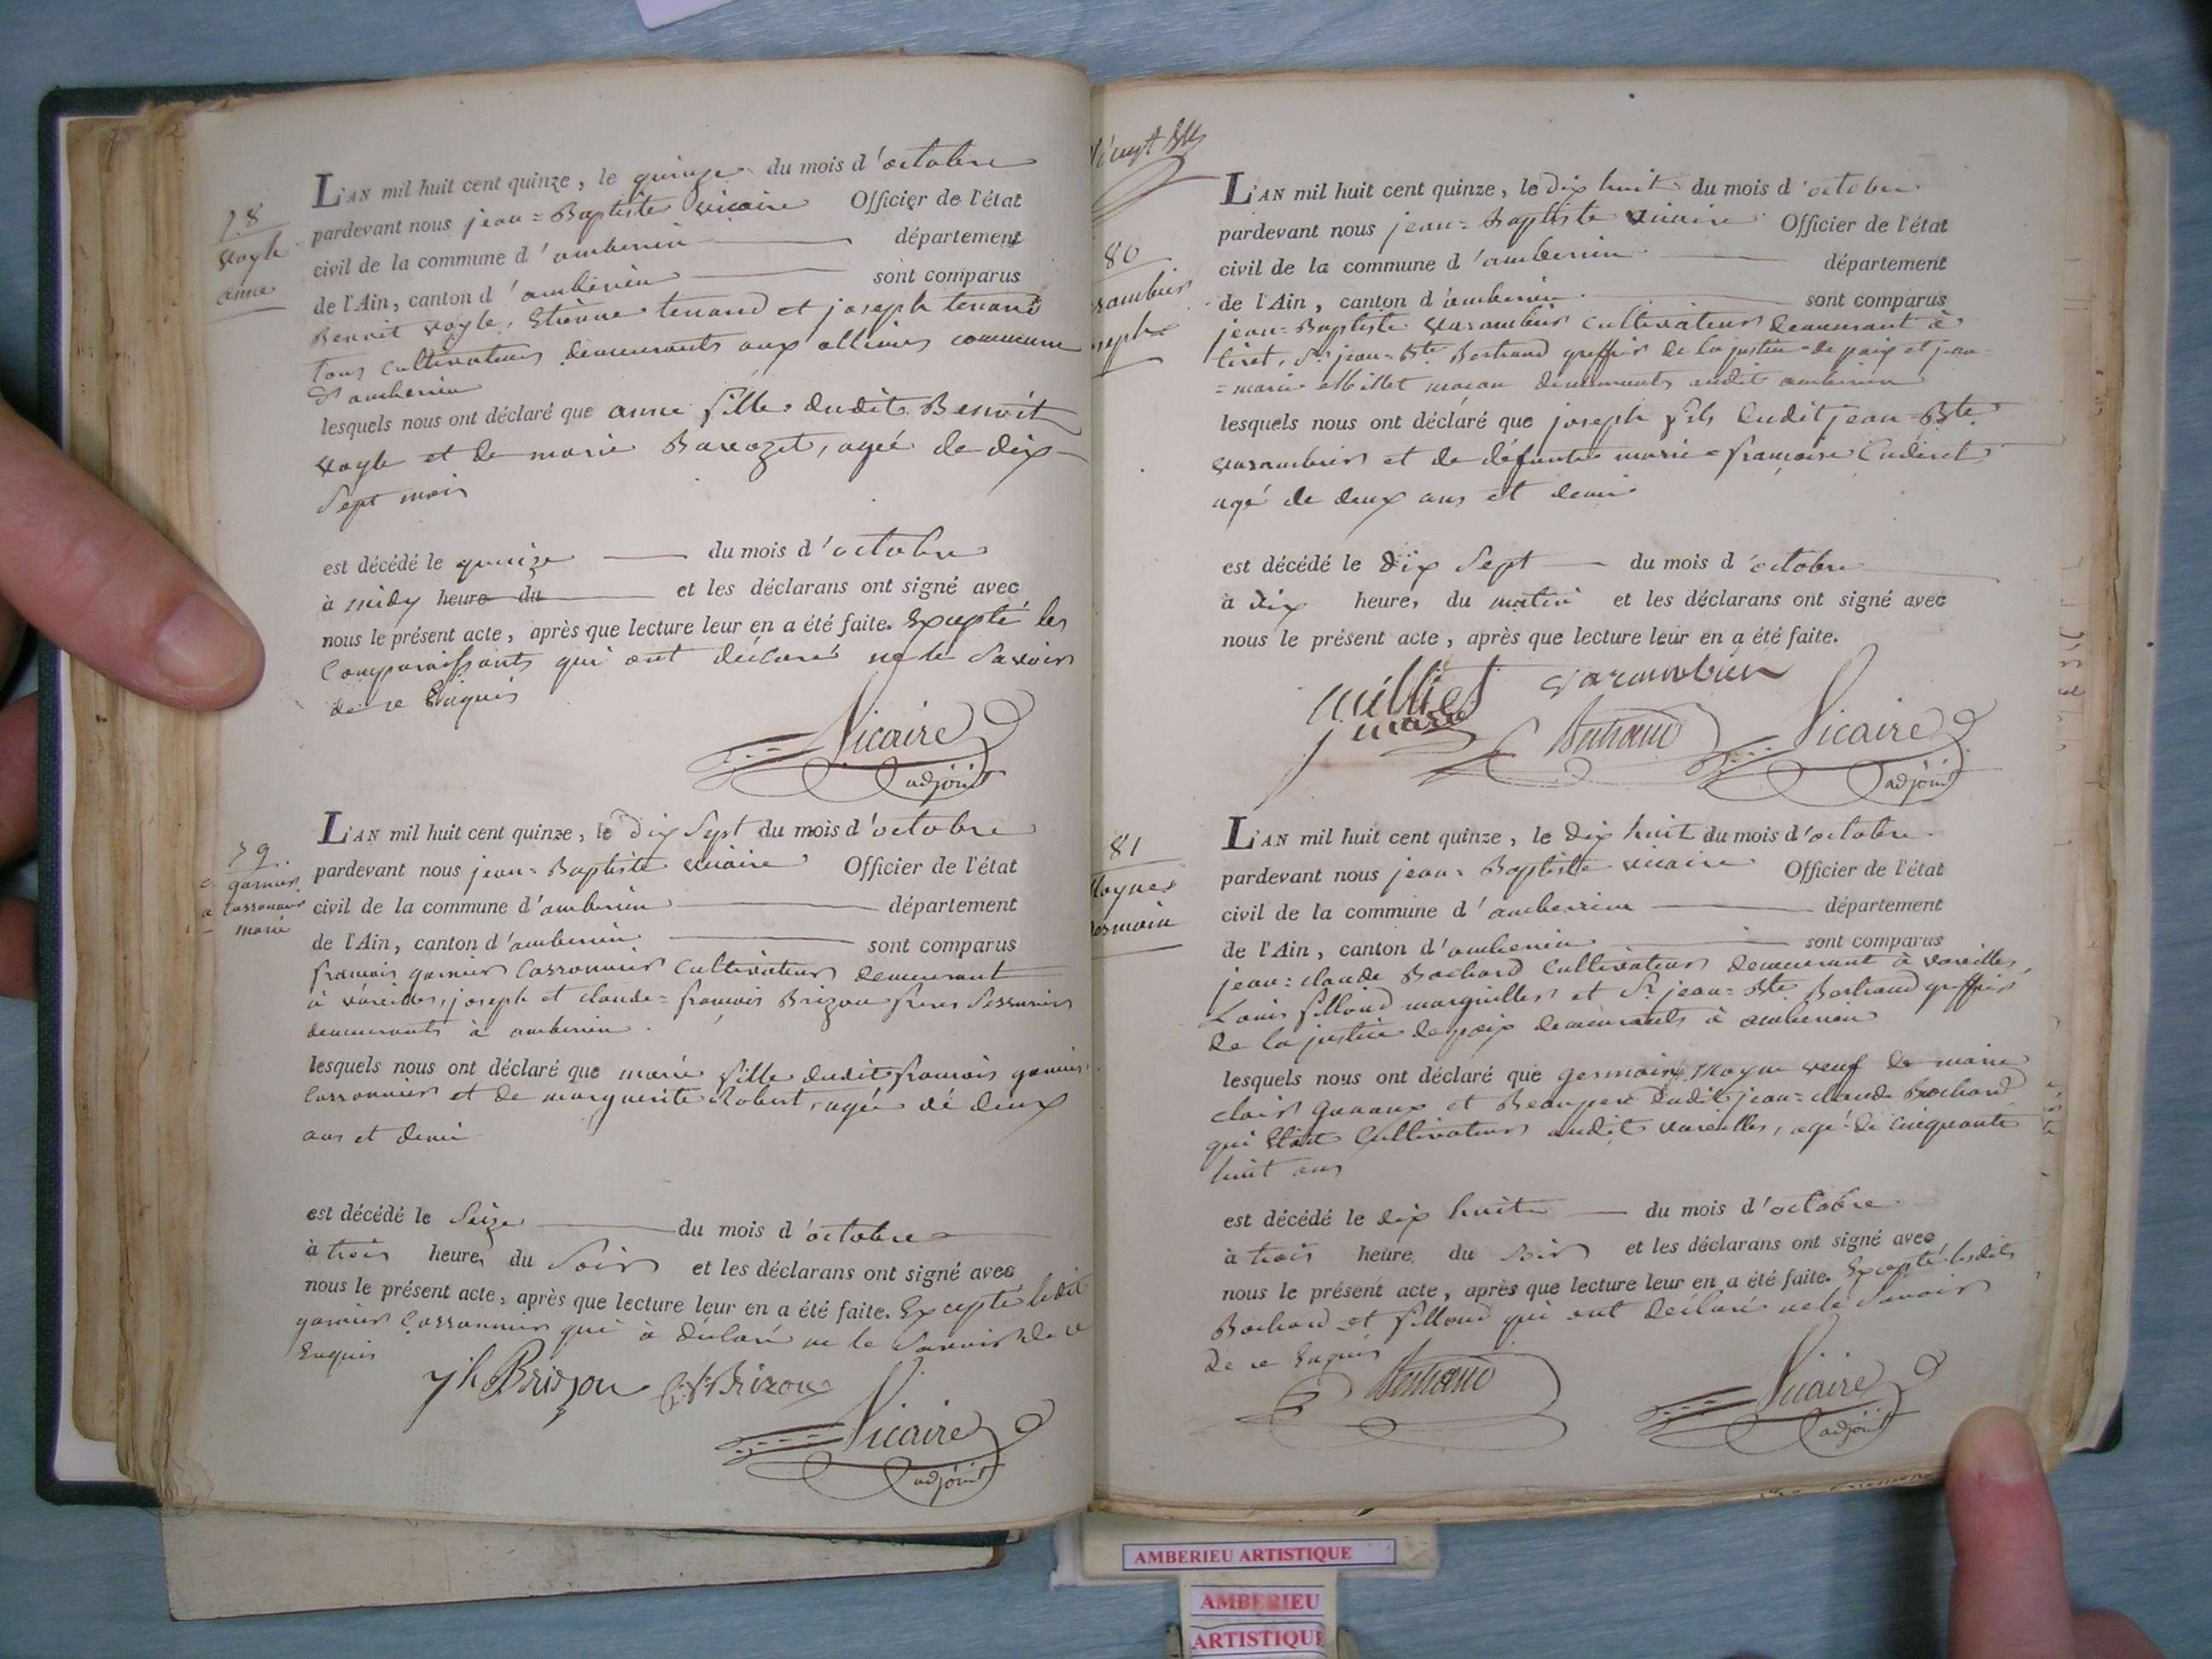 78
vogle
anne
L'AN mil huit cent quinze, le quinze du mois d'octobre
pardevant nous jean=Baptiste vicaire Officier de l'état
civil de la commune d'amberieu département
de l'Ain, canton d'amberieu sont comparus
Benoit vogle, Etienne tenand et joseph tenand
tous cultivateurs demeurants aux allimes commune
d'amberieu
lesquels nous ont déclaré que anne fille dudit Benoit
vogle et de marie Bavozet, agée de dix
sept mois
est décédé le quinze du mois d'octobre
à midy heure du et les déclarans ont signé avec
nous le présent acte, après que lecture leur en a été faite. Excepté les
Comparaissants qui ont déclaré ne le savoir
de ce Enquis
Vicaire
adjoint
79
garnier
Cassonnier
marie
L'AN mil huit cent quinze, le dix sept du mois d'octobre
pardevant nous jean=Baptiste vicaire Officier de l'état
civil de la commune d'amberieu département
de l'Ain, canton d'amberieu sont comparus
francois garnier Cassonnier Cultivateur demeurant
à vareilles, joseph et claude=francois Brizon freres
demeurants à amberieu
lesquels nous ont déclaré que marie fille dudit francois garnier
Cassonnier et de marguerite Robert, agée de deux
ans et demi
est décédé le Seize du mois d'octobre
à trois heures du Soir et les déclarans ont signé avec
nous le présent acte, après que lecture leur en a été faite. Excepté ledit
garnier Cassonnier qui a déclaré ne le Savoir de ce
Enquis
jh Brizon Brizon
Vicaire
adjoint
80
L'AN mil huit cent quinze, le Dix huit du mois d'octobre
pardevant nous jean=Baptiste vicaire Officier de l'état
civil de la commune d'amberieu département
de l'Ain, canton d'amberieu sont comparus
jean=Baptiste varambier Cultivateur demeurant à
tiret, Sr jean=Bte Bertrand greffier de la justice de paix et jean
=marie Milliet macon demeurants audit amberieu
lesquels nous ont déclaré que joseph fils dudit jean=Bte
varambier et de défunte marie=francoise
agé de deux ans et demi
est décédé le Dix Sept du mois d'octobre
à dix heures du matin et les déclarans ont signé avec
nous le présent acte, après que lecture leur en a été faite.
milliet varambier
Bertrand Vicaire
adjoint
81
L'AN mil huit cent quinze, le Dix huit du mois d'octobre
pardevant nous jean=Baptiste vicaire Officier de l'état
civil de la commune d'amberieu département
de l'Ain, canton d'amberieu sont comparus
jean=claude Bochard Cultivateur demeurant à vareilles,
Louis fillond marguillier et Sr jean=Bte Bertrand greffier
de la justice de paix demeurants à amberieu
lesquels nous ont déclaré que germain Moyne veuf de marie
clair et Beaupere dudit jean=claude Bochard
qui était Cultivateur audit vareilles, agé de cinquante
huit ans
est décédé le dix huit du mois d'octobre
à trois heure du Soir et les déclarans ont signé avec
nous le présent acte, après que lecture leur en a été faite. Excepté lesdits
Bochard et fillond qui ont déclaré ne le Savoir
de ce Enquis
Bertrand Vicaire
adjoint
AMBERIEU ARTISTIQUE
AMBERIEU
ARTISTIQUE